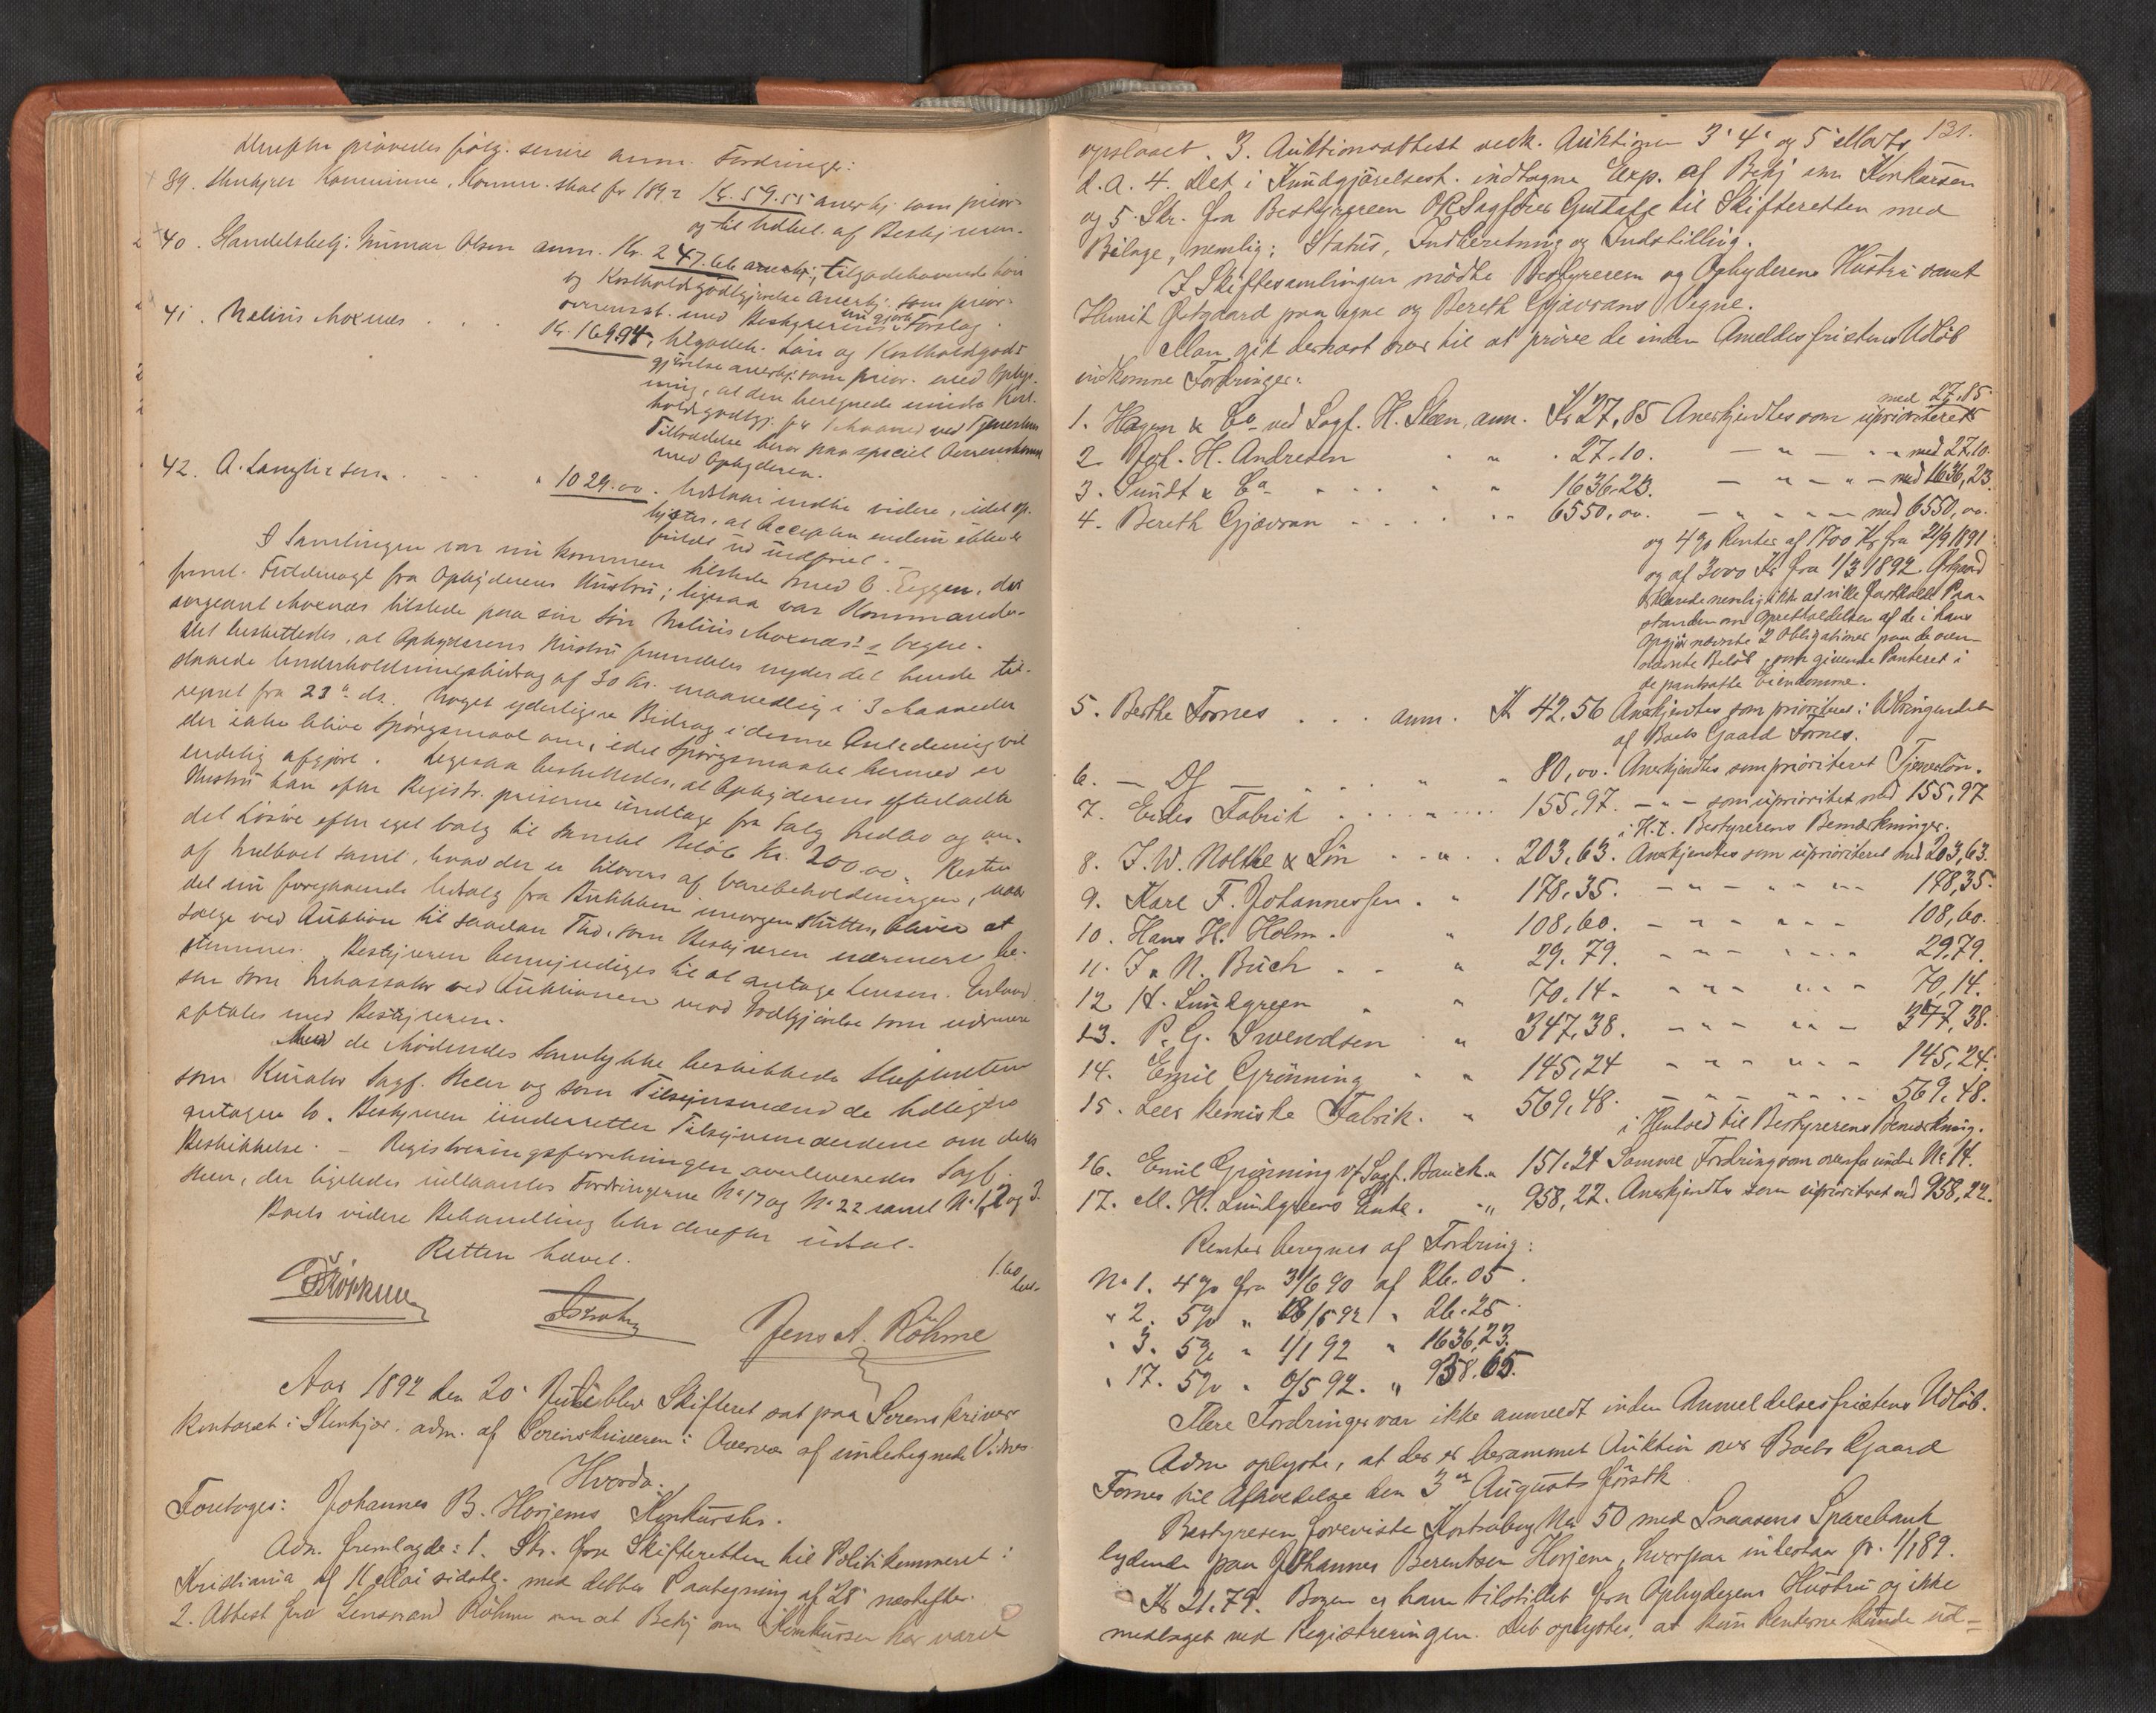 Derefter prövedes fölg. senere anm. Fordringer:
39. Stenkjær Kommune, Komm. skat for 1892 Kr. 59.55 anerkj. som prior.
og til Udbet. af Bestyreren.
40. Handelsbetj. Gunnar Olsen anm. Kr. 247.66 anerkj. tilgodehavende Lön
og Kostholdsgodtgjörelse anerkj. som prior.
overensst. med Bestyrerens nu gjorte Forslag.
41. Nelius Moxnæs . . . Kr. 169.94, tilgodeh. Lön og Kostholdsgodt-
gjörelse anerkj. som prior. med Oplys-
ning, at den beregnede mindre Kost-
holdsgodtgj. for 1 Maaned ved Tjenestens
Tiltrædelse beror paa speciel Overenskomst
med Ophyderen.
42. A. Langlie sen. . . . " 1029.00. Udstaar indtil videre, idet op-
lystes, at Accepten endnu ikke er
fuldt ud indfriet.
I Samlingen var nu kommen tilstede med O. Eggen, der
freml. Fuldmagt fra Ophyderens Hustru; ligesaa var Kommander-
sergeant Moxnæs tilstede paa sin Sön Nelius Moxnæs's Vegne.
Det besluttedes, at Ophyderens Hustru fremdeles nyder det hende til-
staaede Underholdningsbidrag af 30 Kr. maanedlig i 3 Maaneder
regnet fra 23de ds. Noget yderligere Bidrag i denne Anledning vil
der ikke blive Spörgsmaal om, idet Spörgsmaalet hermed er
endelig afgjort. Ligesaa besluttedes, at Ophyderens efterladte
Hustru kan efter Registr. priserne undtage fra Salg Indbo og an-
det Lösöre efter eget Valg til samlet Belöb Kr. 200.00. Resten
af Indboet samt, hvad der er tilovers af Varebeholdningen, naar
det nu foregaaende Udsalg fra Butikken imorgen sluttes, bliver at
sælge ved Auktion til saadan Tid, som Bestyreren nærmere be-
stemmer. Bestyreren bemyndiges til at antage Lensm. Esland
sen som Inkassator ved Auktionen mod Godtgjörelse som nærmere
aftales med Bestyreren.
Med de Mödendes Samtykke beskikkede Skifteretten
som Kurator Sagf. Steen og som Tilsynsmænd de tidligere
antagne to. Bestyreren underretter Tilsynsmændene om deres
Beskikkelse. – Registreringsforretningen overleveredes Sagf.
Steen, der ligeledes udlaantes Fordringerne No 17 og No 22 samt No 1, 2 og 3.
Boets videre Behandling blev derefter udsat.
Retten hævet.
1.60
Jens A. Röhme
Aar 1892 den 20de Juli blev Skifteret sat paa Sorenskriver
kontoret i Stenkjær, adm. af Sorenskriveren i Overvær af undertegnede Vidner.
Hvorda:
Foretoges: Johannes B. Horjems Konkursbo.
Adm. fremlagde: 1. Skr. fra Skifteretten til Politikammeret i
Kristiania af 11 Mai sidstl. med dettes Paategning af 28de næstefter.
2. Attest fra Lensmand Röhme om at Bekj. om Konkursen har været
131.
opslaaet. 3. Auktionsattest vedk. Auktionen 3' 4' og 5' Marts
d. A. 4. Det i Kundgjörelsest. indtagne Exp. af Bekj. om Konkursen
og 5. Skr. fra Bestyreren ORSagförer Guttelse til Skifteretten med
Bilage, nemlig: Status, Indberetning og Indstilling.
I Skiftesamlingen mödte Bestyreren og Ophyderens Hustru samt
Henrik Östgaard paa egne og Bereth Gjævrans Vegne.
Man gik dernæst over til at pröve de inden Anmeldesfristens Udlöb
indkomne Fordringer:
1. Hagen & Co ved Sagf. H. Steen, anm. Kr 27,85 Anerkjendtes som uprioriteret med 27,85.
2. Joh. H. Andresen " " 27.10. – " – " – med 27,10.
3. Sundt & Co " " 1636.23. – " – " – med 1636,23.
4. Bereth Gjævran . . . " 6550,00. – " – " – med 6550,00.
og 4 % Renter af 1700 Kr fra 21/9 1891
og af 3000 Kr fra 1/3 1892. Östgaard
erklærede nemlig ikke at ville fastholde Paa-
standen om Opretholdelsen af de i hans
Opgjör nævnte 2 Obligationer paa de oven-
nævnte Belöb, som givende Panteret i
de pantsatte Eiendomme.
5. Berthe Fornes . . . anm. Kr 42,56 Anerkjendtes som prioriteret i Udbringendet
af Boets Gaard Fornes.
6. – Do – . . . " 80,00. Anerkjendtes som prioriteret Tjenerlön.
7. Eides Fabrik . . . . 155,97. – " – som uprioritet med 155,97
i H.t. Bestyrerens Bemærkninger.
8. J. W. Moltke & Sön . . " . 203,63. Anerkjendtes som uprioriteret med 203,63.
9. Karl F. Johannessen . " 178.35. – " – " – " – 178,35.
10. Hans H. Holm . " 108,60. – " – " – 108,60.
11. J. N. Buch . . " 29.79. – " – " – 29,79.
12 H. Lundgreen . " 70.14. – " – " – 70,14.
13. P. G. Svendsen . " 347,38. – " – " – 347,38.
14. Emil Grönning " " 145,24 – " – " – 145,24.
15. Lees kemiske Fabrik. " 569,48. – " – " – 569,48.
i Henhold til Bestyrerens Bemærkning.
16. Emil Grönning v/ Sagf. Bauck " 151.24 Samme Fordring som ovenfor under No 14.
17. M. H. Lundgreens Enke. " 958,22. Anerkjendtes som uprioriteret med 958,22.
Renter beregnes af Fordring:
No 1. 4 % fra 3/6 90 af 26.05.
" 2. 5 % " 18/5 92 " 26.25.
" 3. 5 % " 1/1 92 " 1636,23.
" 17. 5 % " 6/5 92. " 938.65.
Flere Fordringer var ikke anmeldt inden Anmeldelsesfristens Udlöb.
Adm oplyste, at der er berammet Auktion over Boets Gaard
Fornes til Afholdelse den 3die Augusts förstk.
Bestyreren foreviste Kontrabog No 50 med Snaasens Sparebank
lydende paa Johannes Berentsen Horjem, hvorpaa indestaar pr. 1/1 89.
Kr 21.79. Bogen er ham tilstillet fra Ophyderens Hustru og ikke
medtaget ved Registreringen. Det oplystes, at kun Renterne kunde ud=